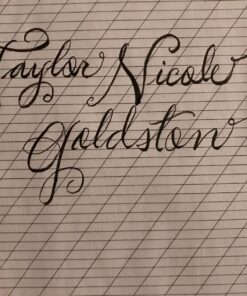 Taylor Nicole
Goldston